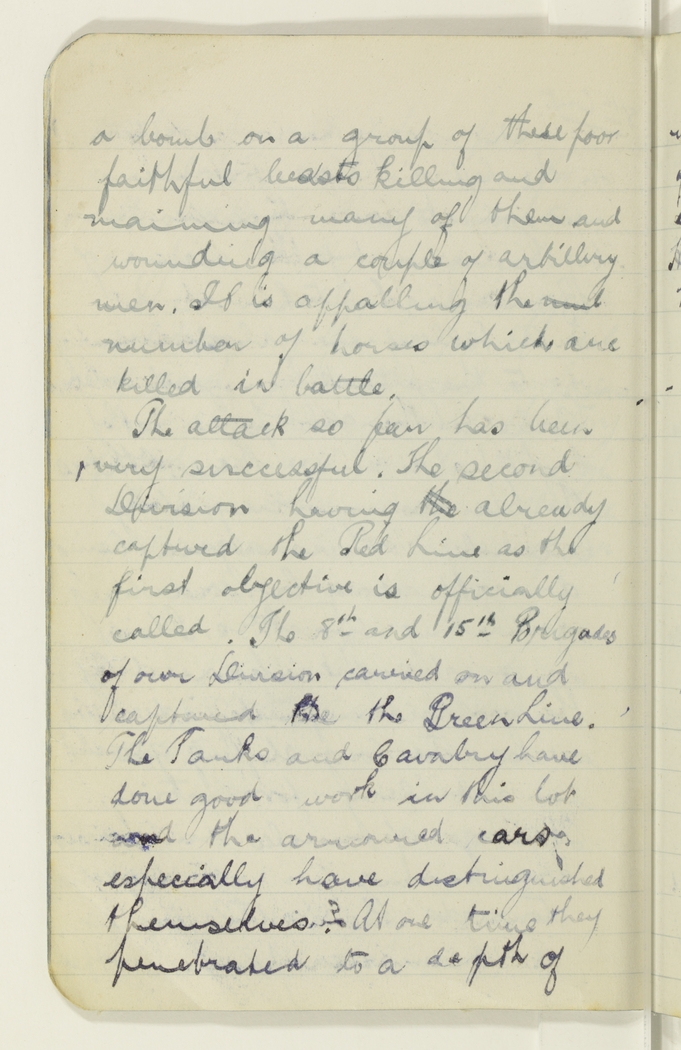 a bomb on a group of these poor
faithful beasts killing and
maiming many of them and
wounding a couple of artillery
men. It is appalling the
number of horses which are
killed in battle.
The attack so far has been
very successful. The second
Division having the already
captured the Red Line as the
first objective is officially
called. The 8th and 15th Brigades
of our Division carried on and
captured the the Green Line.
The Tanks and Cavalry have
done good work in this lot
and the armoured cars
especially have distinguished
themselves. At one time they
penetrated to a depth of